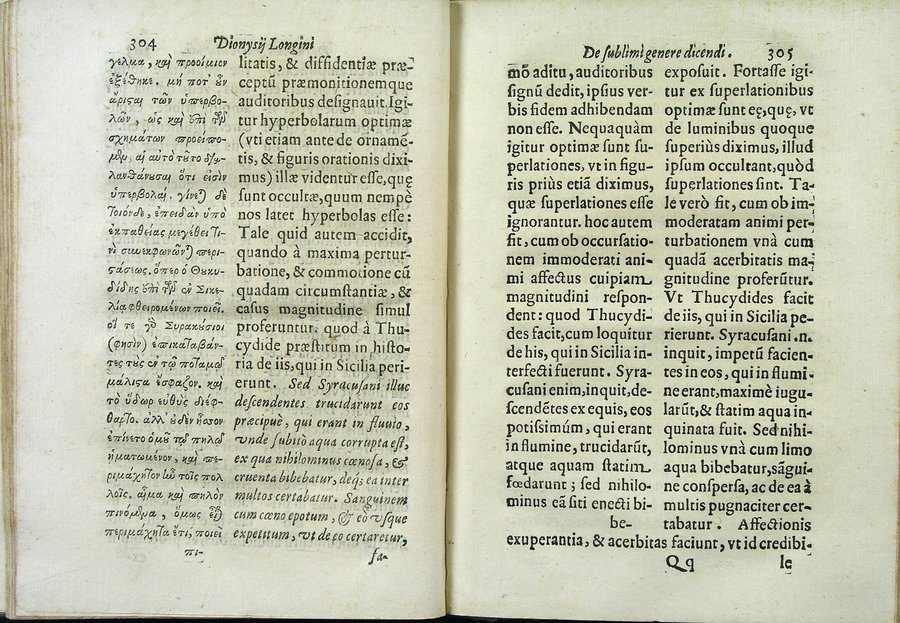 304
Dionysij Longini
γελμα, καὶ προοίμιον
ἐξέθηκε. μή ποτ' οὖν
ἄρισται τῶν ὑπερβο-
λῶν, ὡς καὶ ἐπὶ τῶν
σχημάτων προείπο-
μεν, αἱ αὐτὸ τοῦτο δια-
λανθάνουσαι ὅτι εἰσὶν
ὑπερβολαί. γίνεται δὲ
τοιόνδε, ἐπειδὰν ὑπὸ
ἐκπαθείας μεγέθει τι-
νὶ συνεκφωνῶνται περι-
στάσεως. ὅπερ ὁ Θουκυ-
δίδης ἐπὶ τῶν ἐν Σικε-
λίᾳ φθειρομένων ποιεῖ.
οἵ τε γὸ Συρακούσιοι
(φησὶν) ἐπικαταβάν-
τες τοὺς ἐν τῷ ποταμῷ
μάλιστα ἔσφαζον. καὶ
τὸ ὕδωρ εὐθὺς διέφ-
θαρτο. ἀλλ' οὐδὲν ἧσσον
ἐπίνετο ὁμοῦ τῷ πηλῷ
ἡματωμένον, καὶ πε-
ριμάχητον ἦν τοῖς πολ
λοῖς. αἷμα καὶ πηλὸν
πινόμενα, ὅμως εἶναι
περιμάχητα ἔτι, ποιεῖ
πι-
litatis, & diffidentiæ præ-
ceptũ præmonitionemque
auditoribus designauit. Igi-
tur hyperbolarum optimæ
(vti etiam ante de ornamẽ-
tis, & figuris orationis dixi-
mus) illæ videntur esse, quę
sunt occultæ, quum nempè
nos latet hyperbolas esse:
Tale quid autem accidit,
quando à maxima pertur-
batione, & commotione cũ
quadam circumstantiæ, &
casus magnitudine simul
proferuntur. quod à Thu-
cydide præstitum in histo-
ria de iis, qui in Sicilia peri-
erunt. Sed Syracusani illuc
descendentes trucidarunt eos
præcipuè, qui erant in fluuio,
vnde subitò aqua corrupta est,
ex qua nihilominus cœnosa, &
cruenta bibebatur, deq; ea inter
multos certabatur. Sanguinem
cum cœno epotum, & eò vsque
expetitum, vt de eo certaretur,
fa-
De sublimi genere dicendi.
305
mõ aditu, auditoribus
signũ dedit, ipsius ver-
bis fidem adhibendam
non esse. Nequaquàm
igitur optimæ sunt su-
perlationes, vt in figu-
ris priùs etiã diximus,
quæ superlationes esse
ignorantur. hoc autem
fit, cum ob occursatio-
nem immoderati ani-
mi affectus cuipiam
magnitudini respon-
dent: quod Thucydi-
des facit, cum loquitur
de his, qui in Sicilia in-
terfecti fuerunt. Syra-
cusani enim, inquit, de-
scendẽtes ex equis, eos
potissimùm, qui erant
in flumine, trucidarũt,
atque aquam statim
fœdarunt; sed nihilo-
minus eã siti enecti bi-
be-
exposuit. Fortasse igi-
tur ex superlationibus
optimæ sunt eę, quę, vt
de luminibus quoque
superiùs diximus, illud
ipsum occultant, quòd
superlationes sint. Ta-
le verò fit, cum ob im-
moderatam animi per-
turbationem vnà cum
quadã acerbitatis ma-
gnitudine proferũtur.
Vt Thucydides facit
de iis, qui in Sicilia pe-
rierunt. Syracusani .n.
inquit, impetũ facien-
tes in eos, qui in flumi-
ne erant, maximè iugu-
larũt, & statim aqua in-
quinata fuit. Sed nihi-
lominus vnà cum limo
aqua bibebatur, sãgui-
ne conspersa, ac de ea à
multis pugnaciter cer-
tabatur. Affectionis
exuperantia, & acerbitas faciunt, vt id credibi-
Qq
le